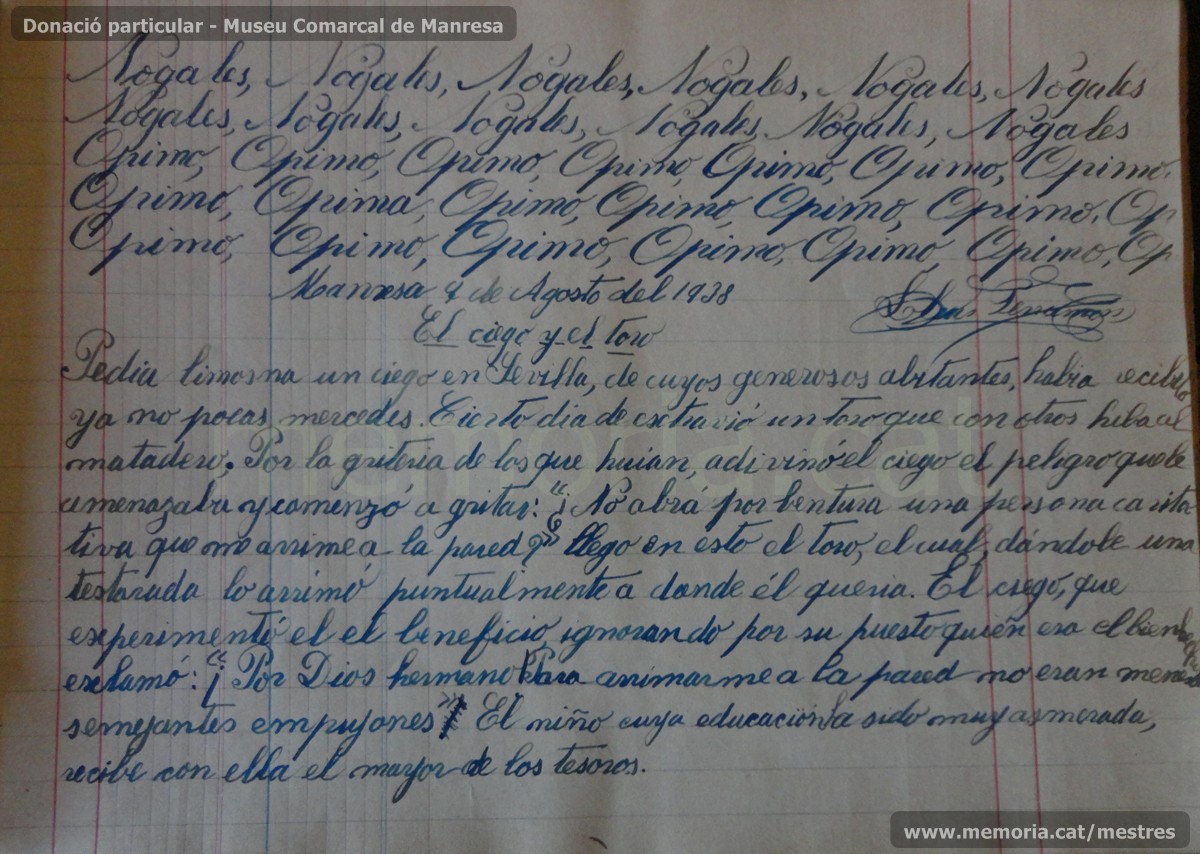 Donació particular - Museu Comarcal de Manresa
Nogales, Nogales, Nogales, Nogales, Nogales, Nogales
Nogales, Nogales, Nogales, Nogales, Nogales, Nogales
Opimo, Opimo, Opimo, Opimo, Opimo, Opimo, Opimo.
Opimo, Opima, Opimo, Opimo, Opimo, Opimo, Op
Opimo, Opimo, Opimo, Opimo, Opimo, Opimo, Op
Manresa 4 de Agosto del 1938
El ciego y el toro
Pedia limosna un ciego en Sevilla, de cuyos generosos abitantes, habia recibido
ya no pocas mercedes. Cierto dia de esctravió un toro que con otros hiba al
matadero. Por la griteria de los que huian, adivinó el ciego el peligro que le
amenazaba y comenzó a gritar: "¡ No abrá por bentura una persona carita-
tiva que me arrime a la pared?" llego en esto el toro, el cual, dándole una
testarada lo arrimó puntualmente a donde él queria. El ciego, que
experimentó el el beneficio, ignorando por su puesto quién era el
exclamó: "¡ Por Dios hermano Para arrimarme a la pared no eran
semejantes empujones" El niño cuya educación a sido muy asmerada,
recibe con ella el mayor de los tesoros.
memoria.cat
www.memoria.cat/mestres